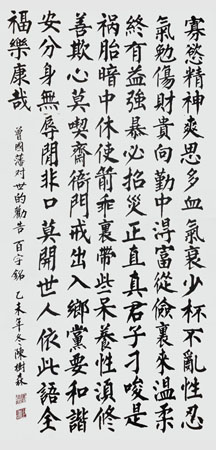 寡慾精神爽思多血氣衰少杯不亂性忍
氣勉傷財貴向勤中得富從儉裏來溫柔
終有益強暴必招災正直真君子刁唆是
祸胎暗中休使箭乖裏帶些呆養性須修
善欺心莫喫齋衙門戒出入鄉黨要和諧
安分身無辱閒非口莫開世人依此語全
福樂康哉
曾國藩对世的勸告 百字銘 乙未年冬陳樹森